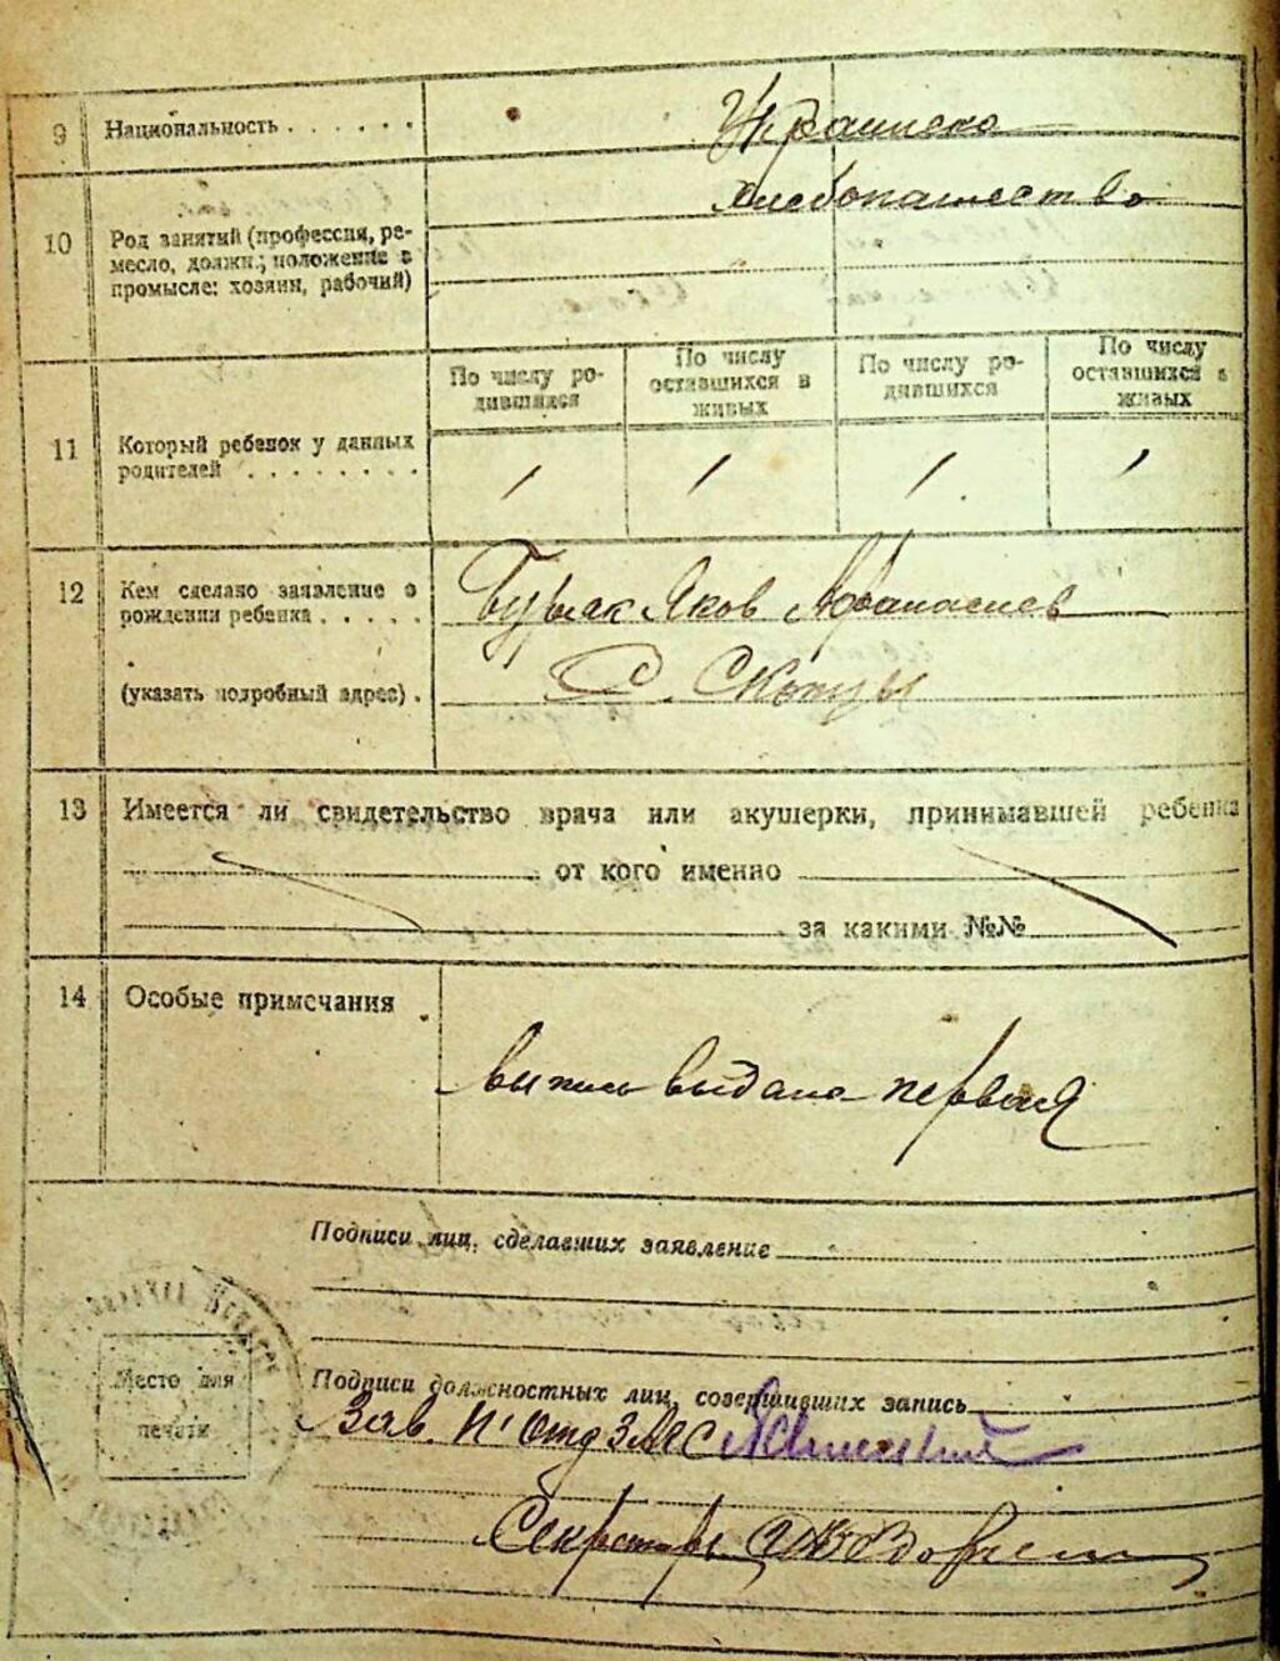 9 Национальность . . . . . .
Украинско
хлебопашество
10 Род занятий (профессия, ре-
месло, должн.; положение в
промысле: хозяин, рабочий)
По числу ро-
дившихся
По числу
оставшихся в
живых
По числу ро-
дившихся
По числу
оставшихся в
живых
11 Который ребенок у данных
родителей . . . . . . . .
1 1 1 1
12 Кем сделано заявление о
рождении ребенка . . . . .
Бурьяк Яков Афанасиев
(указать подробный адрес) .
С. Скопцы
13 Имеется ли свидетельство врача или акушерки, принимавшей ребенка
от кого именно
за какими №№
14 Особые примечания
выпись выдана первая
Подписи лиц, сделавших заявление
Подписи должностных лиц, совершивших запись
Зав. П' Отд ЗАГС
Место для
печати
Секретарь